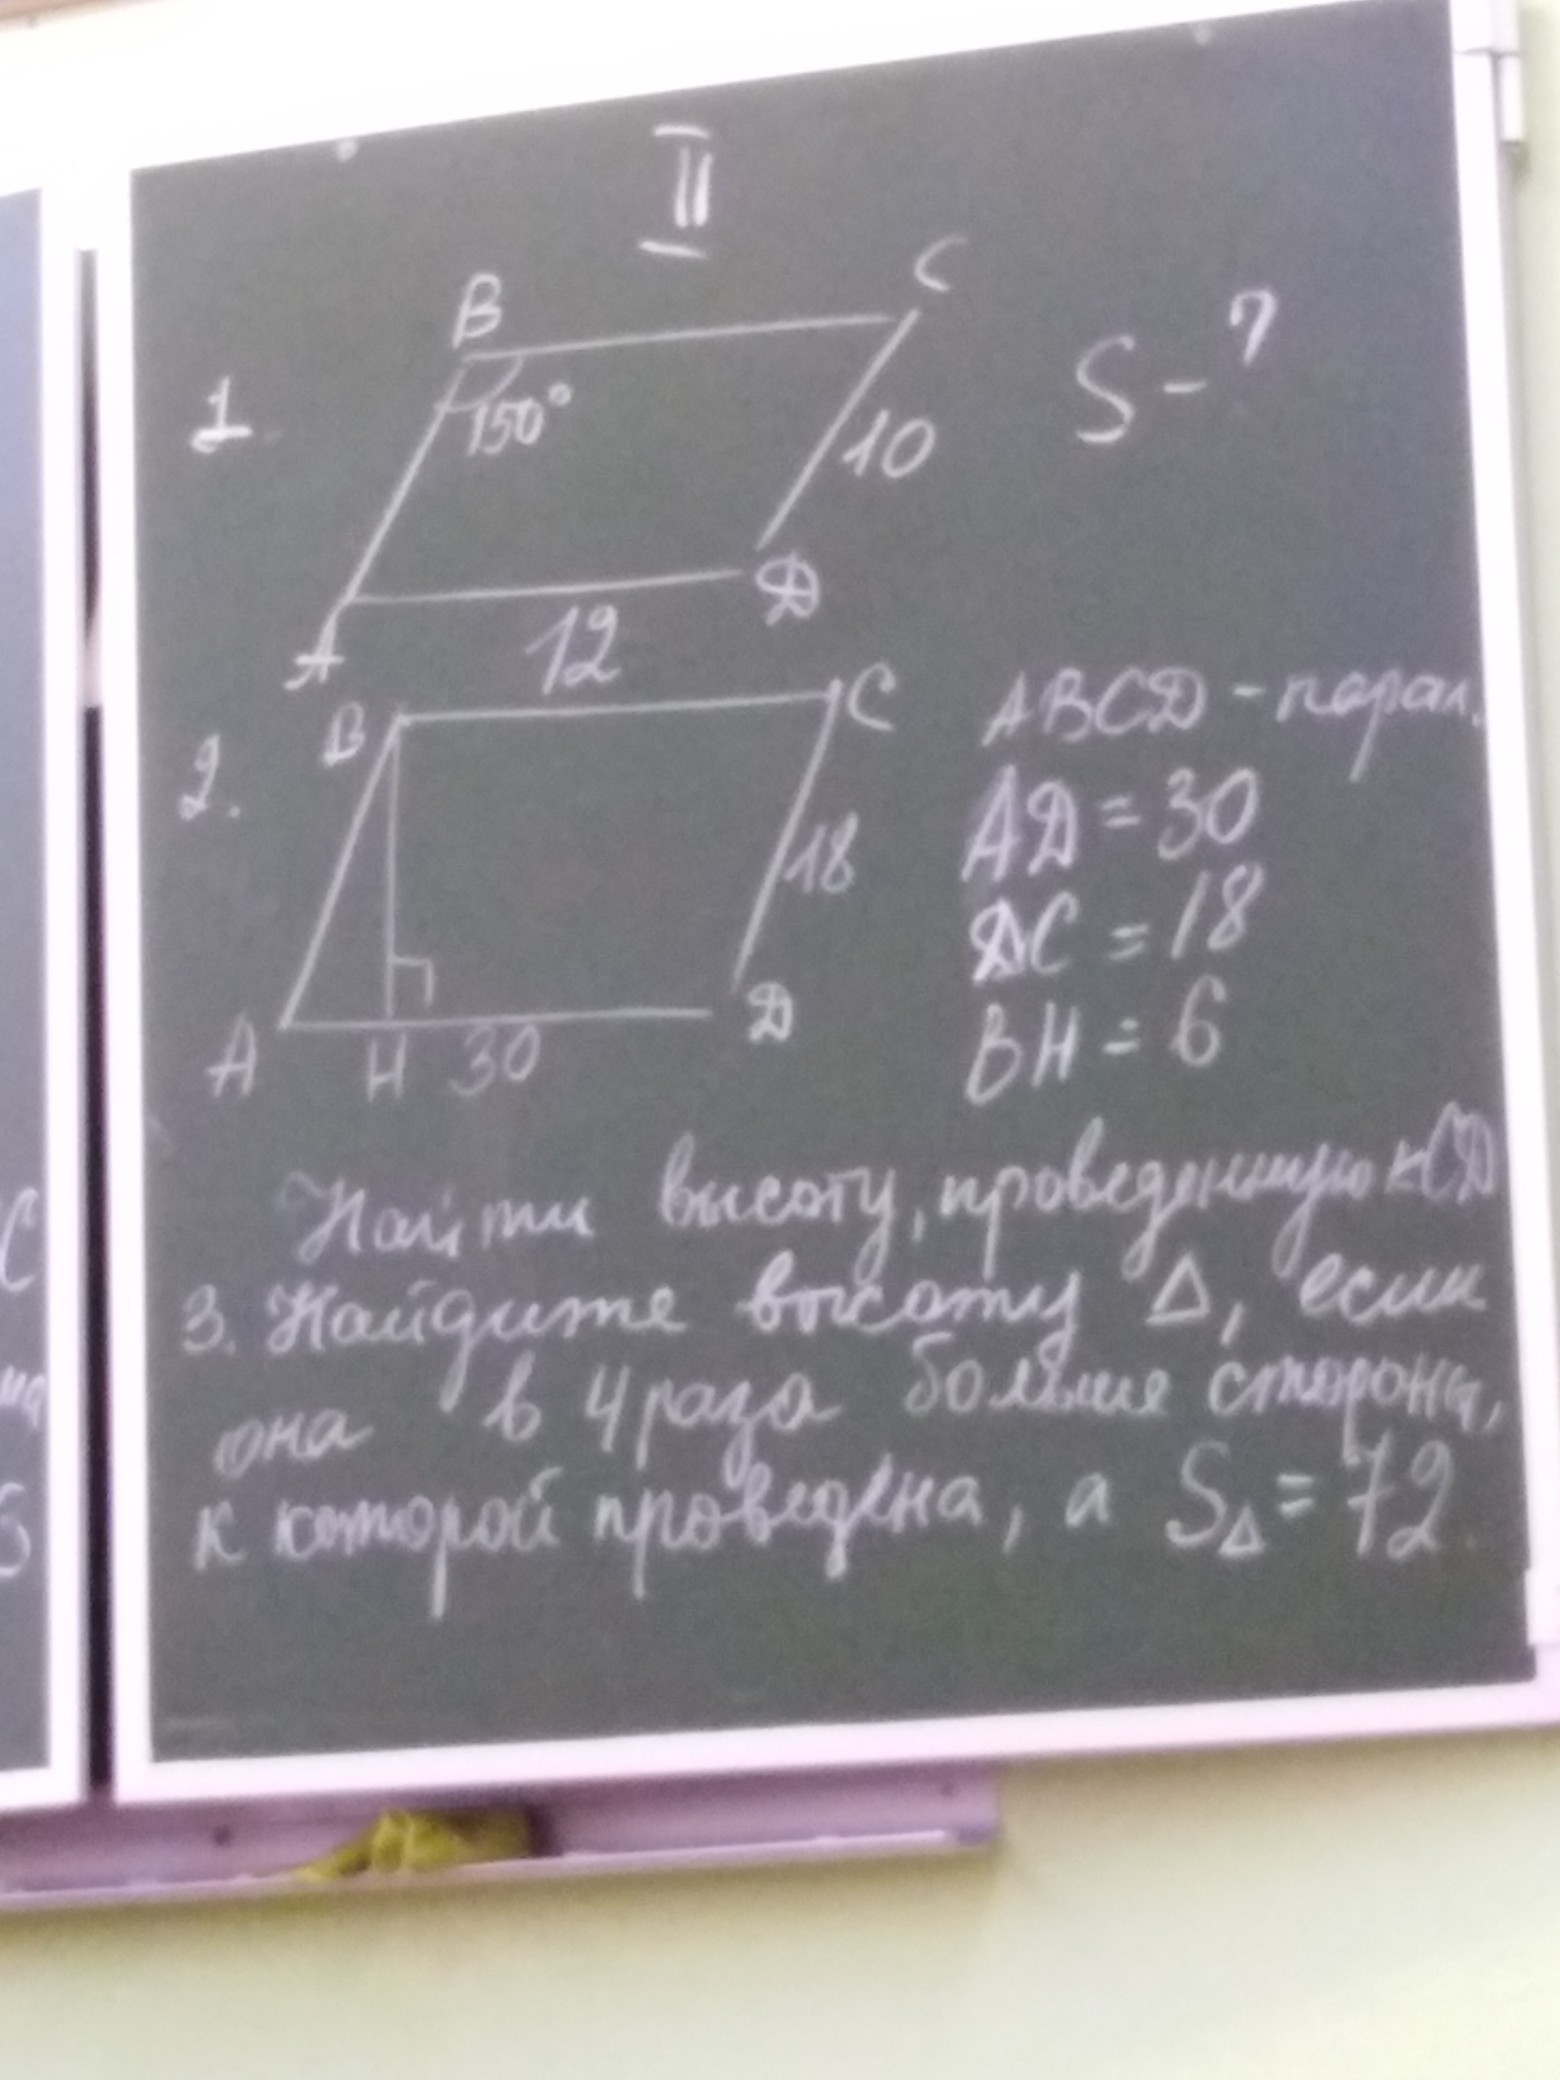 II
1.
B
C
150°
10
S-?
A
12
D
2.
B
C
18
A
H
30
D
ABCD - парал.
AD = 30
DC = 18
BH = 6
Найти высоту, проведенную к CD
3. Найдите высоту Δ, если
она в 4 раза больше стороны,
к которой проведена, а SΔ = 72.
С
S